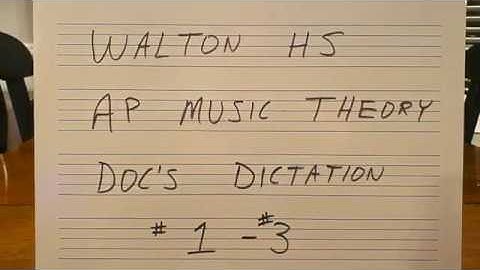 WALTON HS
AP MUSIC THEORY
DOC'S DICTATION
# 1 - #3